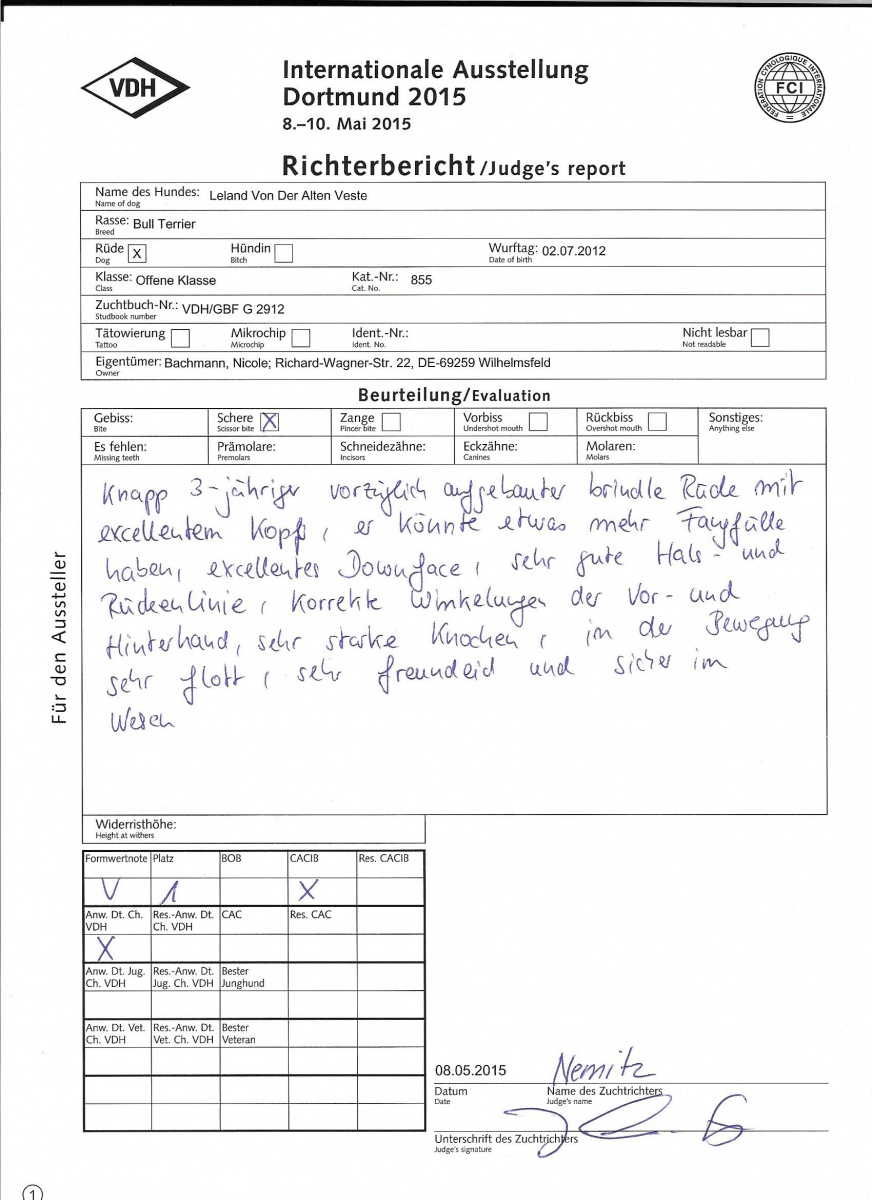 VDH
Internationale Ausstellung
Dortmund 2015
8.–10. Mai 2015
FEDERATION CYNOLOGIQUE INTERNATIONALE
FCI
Richterbericht /Judge's report
Name des Hundes: Leland Von Der Alten Veste
Name of dog
Rasse: Bull Terrier
Breed
Rüde X Hündin Wurftag: 02.07.2012
Dog Bitch Date of birth
Klasse: Offene Klasse Kat.-Nr.: 855
Class Cat. No.
Zuchtbuch-Nr.: VDH/GBF G 2912
Studbook number
Tätowierung Mikrochip Ident.-Nr.: Nicht lesbar
Tattoo Microchip Ident. No. Not readable
Eigentümer: Bachmann, Nicole; Richard-Wagner-Str. 22, DE-69259 Wilhelmsfeld
Owner
Beurteilung/Evaluation
Gebiss: Schere X Zange Vorbiss Rückbiss Sonstiges:
Bite Scissor bite Pincer bite Undershot mouth Overshot mouth Anything else
Es fehlen: Prämolare: Schneidezähne: Eckzähne: Molaren:
Missing teeth Premolars Incisors Canines Molars
Für den Aussteller
Knapp 3-jähriger vorzüglich aufgebauter brindle Rüde mit
excellentem Kopf, er könnte etwas mehr Fangfülle
haben, excellentes Downface, sehr gute Hals- und
Rückenlinie, korrekte Winkelungen der Vor- und
Hinterhand, sehr starke Knochen, in der Bewegung
sehr flott, sehr und sicher im
Wesen
Widerristhöhe:
Height at withers
Formwertnote Platz BOB CACIB Res. CACIB
V 1 X
Anw. Dt. Ch. Res.-Anw. Dt. CAC Res. CAC
VDH Ch. VDH
X
Anw. Dt. Jug. Res.-Anw. Dt. Bester
Ch. VDH Jug. Ch. VDH Junghund
Anw. Dt. Vet. Res.-Anw. Dt. Bester
Ch. VDH Vet. Ch. VDH Veteran
08.05.2015 Nemitz
Datum Name des Zuchtrichters
Date Judge's name
Unterschrift des Zuchtrichters
Judge's signature
1